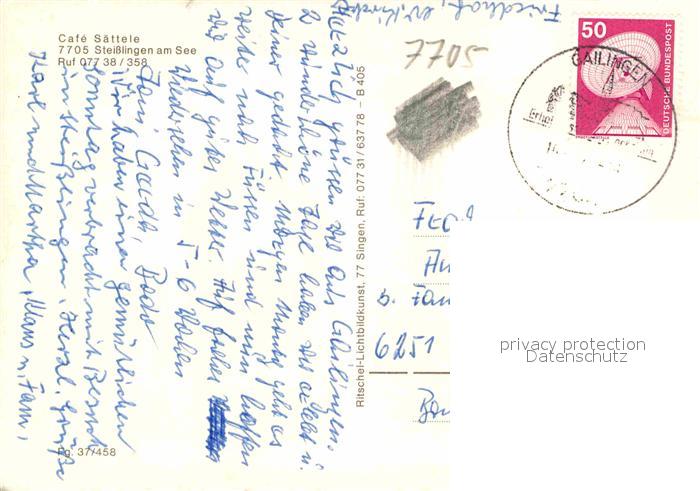 Café Sättele
7705 Steißlingen am See
Ruf 077 38 / 358
Friedhof, ev. Kirche
5077
50
DEUTSCHE BUNDESPOST
GAILINGEN
Herzlich grüssen wir aus Gailingen.
2 wunderschöne Tage haben wir erlebt u.
Deiner gedacht. Morgen Montag geht es
weiter nach Füssen und nun hoffen
wir auf gutes Wetter. Auf frohes
Wiedersehen in 5-6 Wochen
Bodo
Wir haben einen gemütlichen
Sonntag verbracht mit Besuch
in Steißlingen. Herzl. Grüße
Karl und Martha, Klaus u. Fam.
Ritschel-Lichtbildkunst, 77 Singen, Ruf: 077 31/637 78 – B 405
6251
Fg. 37/458
privacy protection
Datenschutz